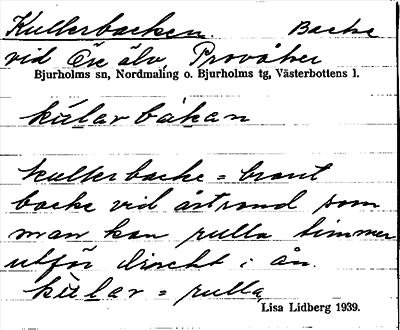 Kullerbacken. Backe
vid Öre älv, Provåker
Bjurholms sn, Nordmaling o. Bjurholms tg, Västerbottens l.
kùlar bàkan
kullerbacke = brant
backe vid åstrand som
man kan rulla timmer
utför direkt i ån.
kùlar = rulla
Lisa Lidberg 1939.